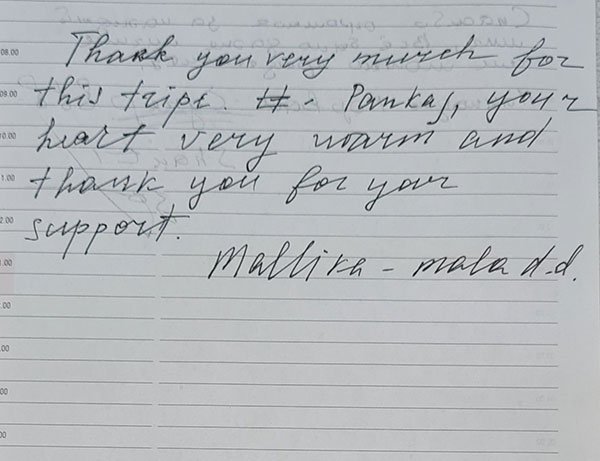 Thank you very much for
this trips. H - Pankaj, your
heart very warm and
thank you for your
support.
Mallika - mala d.d.
08.00
09.00
10.00
1.00
2.00
.00
.00
.00
.00
.00